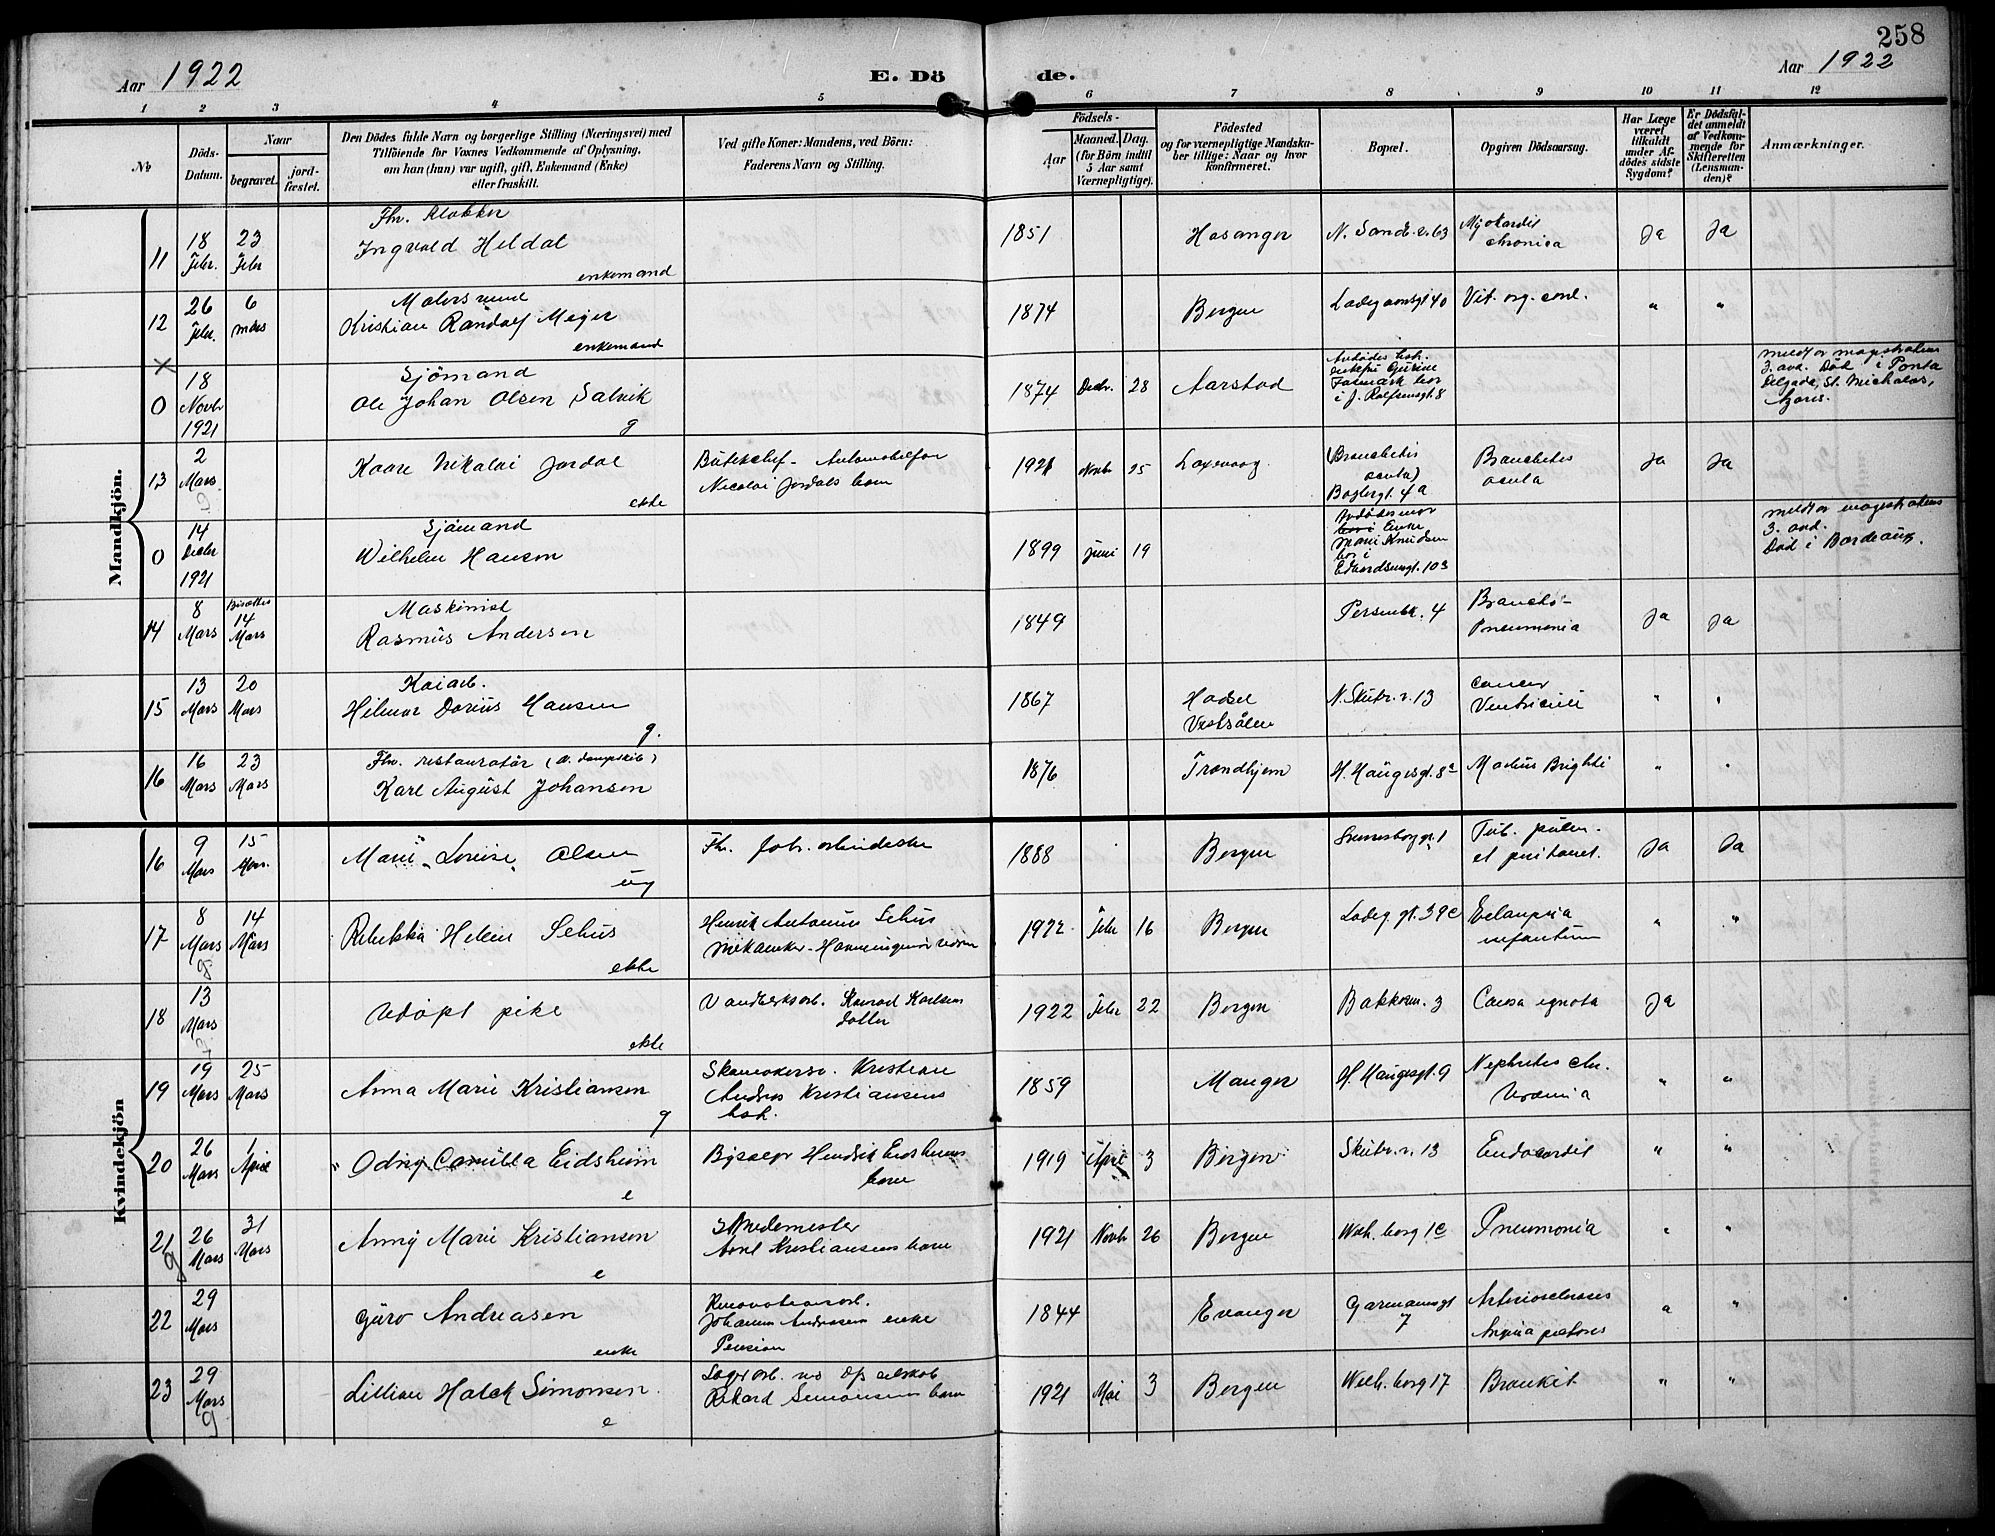 258
Aar 1922
E. Döde.
Aar 1922
1 2 3 4 5 6 7 8 9 10 11 12
No
Döds-Datum.
Naar
begravet.
jord-fæstet.
Den Dödes fulde Navn og borgerlige Stilling (Næringsvei) med
Tilföiende for Voxnes Vedkommende af Oplysning,
om han (hun) var ugift, gift, Enkemand (Enke)
eller fraskilt.
Ved gifte Koner: Mandens, ved Börn:
Faderens Navn og Stilling.
Födsels-
Aar
Maaned. Dag.
(for Börn indtil
5 Aar samt
Værnepligtige).
Födested
og for værnepligtige Mandska-
ber tillige: Naar og hvor
konfirmeret.
Bopæl.
Opgiven Dödsaarsag.
Har Læge
været
tilkaldt
under Af-
dödes sidste
Sygdom?
Er Dödsfal-
det anmeldt
af Vedkom-
mende for
Skifteretten
(Lensman-
den)?
Anmærkninger.
Mandkjön.
11 18 Febr. 23 Febr Fhv. Klokker
Ingvald Heldal
enkemand
1851 Hosanger N. Sandv. v. 63 Myokardit chronica Ja Ja
12 26 Febr. 6 mars Malersvend
Kristian Randolf Meyer
enkemand
1874 Bergen Ladegaardsgt 40 Vit. org. cord. " "
0 18 Novbr 1921 Sjömand
Ole Johan Olsen Salvik
g
1874 Decbr. 28 Aarstad
i J. Rolfsensgt. 8
meldt av magistratens
3. avd. Död i Ponta
Delgada, St. Michaelas,
Azores.
13 2 Mars Kaare Nikolai Jordal
ekte
Nicolai Jordals barn
1921 Novbr 25 Laxevaag (Bronchitis
acuta)
Baglergt. 4 a
Bronchitis
acuta
Ja Ja
0 14 Decbr 1921 Sjömand
Wilhelm Hansen
1899 Juni 19
Avdödes mor
Enke
Marie Knudsen
bor i
Edvardsensgt. 103
meldt av magistratens
3. avd.
Död i Bordeaux.
14 8 Mars Bisættes 14 Mars Maskinist
Rasmus Andersen
1849 Persenbk. 4 Broncho-
Pneumonia
Ja Ja
15 13 Mars 20 Mars Kaiarb.
Hilmar Dorius Hansen
g.
1867 Hadsel
Vesterålen
N. Skutev. v. 13 Cancer
Ventriculi
" "
16 16 Mars 23 Mars Fhv. restauratör (a. dampskib)
Karl August Johansen
1876 Trondhjem H. Haugesgt. 8a Morbus Brightii " "
Kvindekjön
16 9 Mars 15 Mars. Marie Louise Olsen
ug
Fhv. fabr. arbeiderske
1888 Bergen Tub. pulm.
et peritonei.
Ja Ja
17 8 Mars 14 Mars Rebekka Helene Sehus
ekte
Henrik Antonius Sehus
1922 Febr 16 Bergen Ladeg. gt. 39c Eclampsia
infantum
" "
18 13 Mars Udöpt pike
ekte
Konrad Karlsens
datter
1922 Febr 22 Bergen Bakkesm. 3 Causa ignota Ja
19 19 Mars 25 Mars Anna Marie Kristiansen
g
Skomakersv. Kristian
Andreas Kristiansens
hst.
1859 Manger H. Haugesgt. 9 Nephritis chr.
Uræmia
" "
20 26 Mars 1 April Odny Camilla Eidsheim
e
Henrik Eidsheims
barn
1919 April 3 Bergen Skutev. v. 13 Endocardit " "
21 26 Mars 31 Mars Anny Marie Kristiansen
e
Smedemester
Arnt Kristiansens barn
1921 Novb 26 Bergen Welh. borg 1c Pneumonia " "
22 29 Mars Guro Andreasen
enke
Renovationsarb.
Johannes Andreasens enke
Pension
1844 Evanger Garmannsgt
7
Arteriosclerosis
Angina pectoris
" "
23 29 Mars Lillian Halck Simonsen.
e
Rikard Simonsens barn
1921 Mai 3 Bergen Welh. borg 17 Bronkit. " "